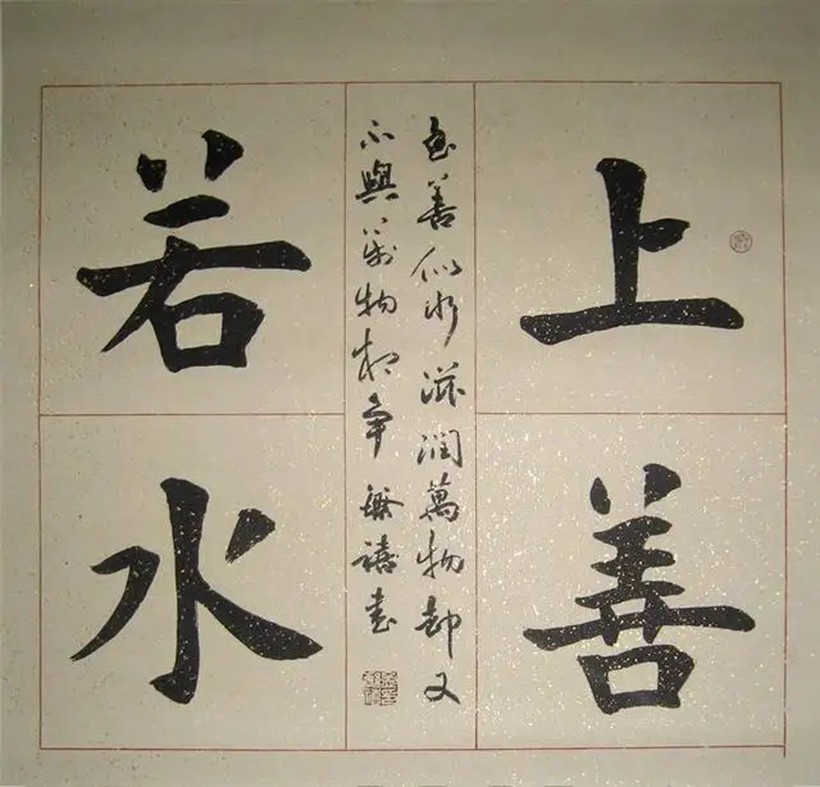 上善
至善似水滋潤萬物却又
不與萬物相争 禧書
若水